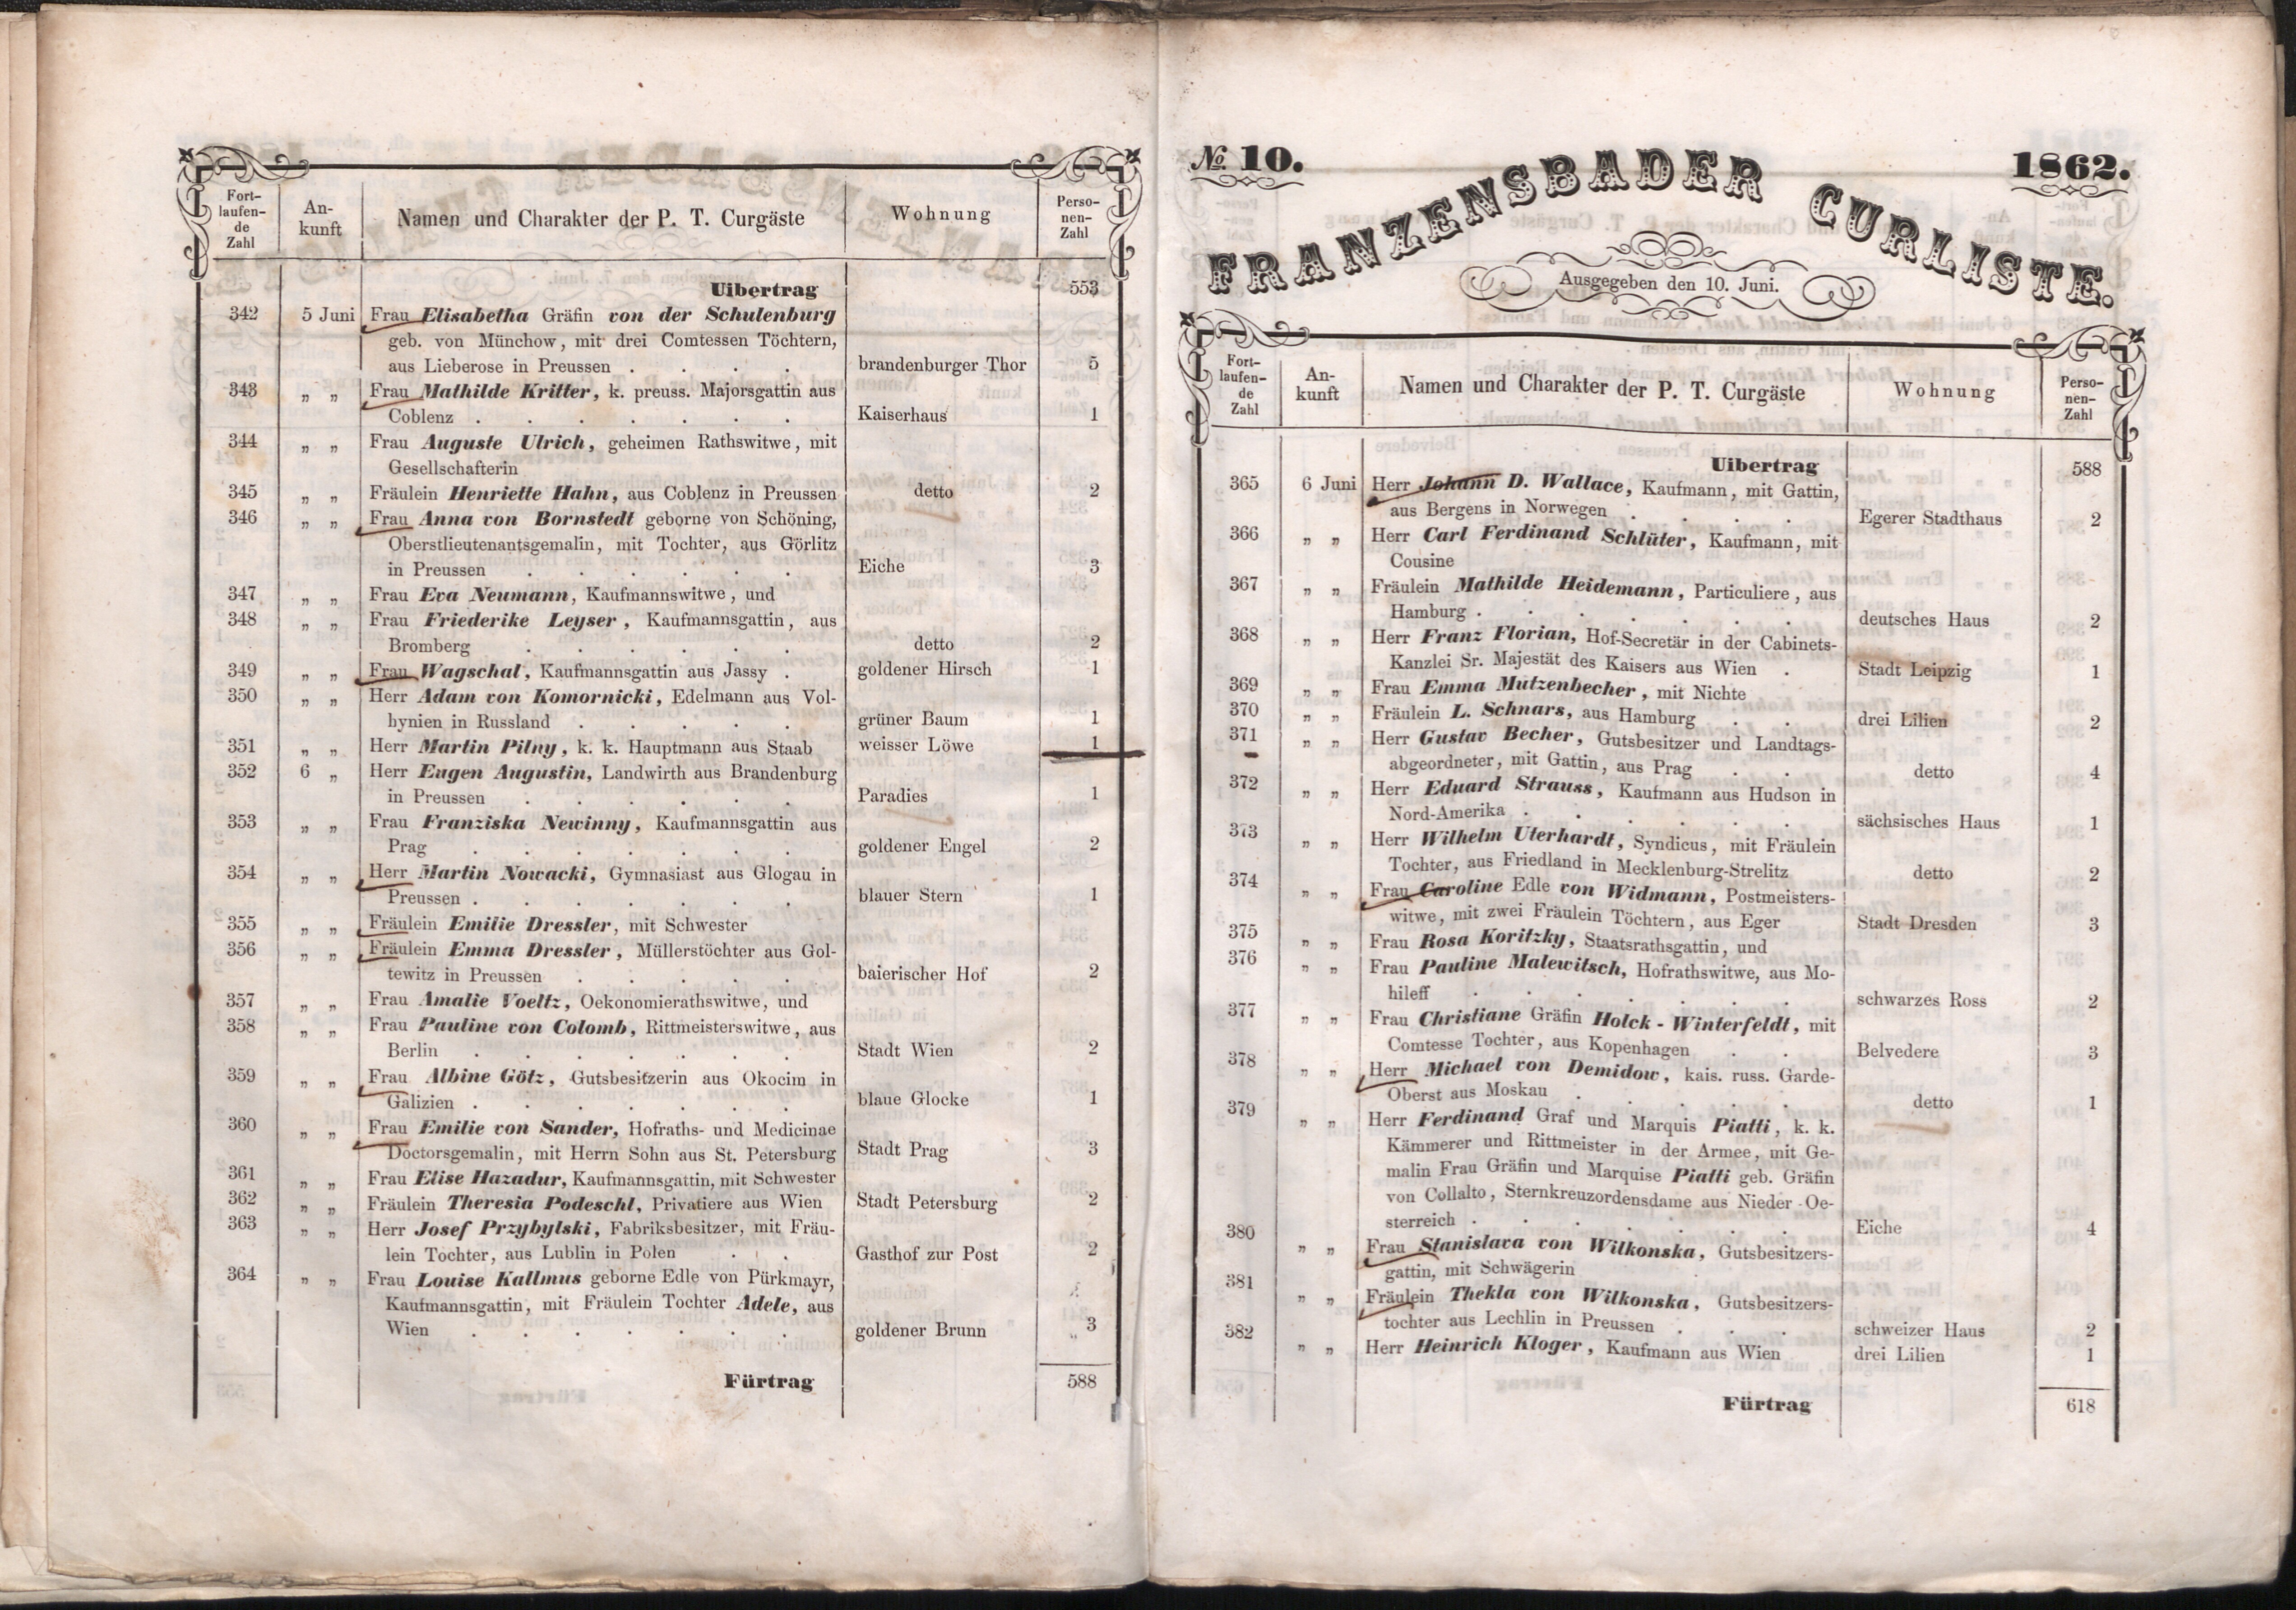 Fort-
laufen-
de
Zahl
An-
kunft
Namen und Charakter der P. T. Curgäste
Wohnung
Perso-
nen-
Zahl
Uibertrag 553
342 5 Juni Frau Elisabetha Gräfin von der Schulenburg
geb. von Münchow, mit drei Comtessen Töchtern,
aus Lieberose in Preussen . . . . brandenburger Thor 5
343 „ „ Frau Mathilde Kritter, k. preuss. Majorsgattin aus
Coblenz . . . . . . . Kaiserhaus 1
344 „ „ Frau Auguste Ulrich, geheimen Rathswitwe, mit
Gesellschafterin
345 „ „ Fräulein Henriette Hahn, aus Coblenz in Preussen detto 2
346 „ „ Frau Anna von Bornstedt geborne von Schöning,
Oberstlieutenantsgemalin, mit Tochter, aus Görlitz
in Preussen . . . . . . Eiche 3
347 „ „ Frau Eva Neumann, Kaufmannswitwe, und
348 „ „ Frau Friederike Leyser, Kaufmannsgattin, aus
Bromberg . . . . . . detto 2
349 „ „ Frau Wagschal, Kaufmannsgattin aus Jassy . goldener Hirsch 1
350 „ „ Herr Adam von Komornicki, Edelmann aus Vol-
hynien in Russland . . . . . grüner Baum 1
351 „ „ Herr Martin Pilny, k. k. Hauptmann aus Staab weisser Löwe 1
352 6 „ Herr Eugen Augustin, Landwirth aus Brandenburg
in Preussen . . . . . . Paradies 1
353 „ „ Frau Franziska Newinny, Kaufmannsgattin aus
Prag . . . . . . . goldener Engel 2
354 „ „ Herr Martin Nowacki, Gymnasiast aus Glogau in
Preussen . . . . . . . blauer Stern 1
355 „ „ Fräulein Emilie Dressler, mit Schwester
356 „ „ Fräulein Emma Dressler, Müllerstöchter aus Gol-
tewitz in Preussen . . . . . baierischer Hof 2
357 „ „ Frau Amalie Voeltz, Oekonomierathswitwe, und
358 „ „ Frau Pauline von Colomb, Rittmeisterswitwe, aus
Berlin . . . . . . . Stadt Wien 2
359 „ „ Frau Albine Götz, Gutsbesitzerin aus Okocim in
Galizien . . . . . . . blaue Glocke 1
360 „ „ Frau Emilie von Sander, Hofraths- und Medicinae
Doctorsgemalin, mit Herrn Sohn aus St. Petersburg Stadt Prag 3
361 „ „ Frau Elise Hazadur, Kaufmannsgattin, mit Schwester
362 „ „ Fräulein Theresia Podeschl, Privatiere aus Wien Stadt Petersburg 2
363 „ „ Herr Josef Przybylski, Fabriksbesitzer, mit Fräu-
lein Tochter, aus Lublin in Polen . . Gasthof zur Post 2
364 „ „ Frau Louise Kallmus geborne Edle von Pürkmayr,
Kaufmannsgattin, mit Fräulein Tochter Adele, aus
Wien . . . . . . . goldener Brunn 3
Fürtrag 588
No. 10. 1862.
FRANZENSBADER CURLISTE.
Ausgegeben den 10. Juni.
Fort-
laufen-
de
Zahl
An-
kunft
Namen und Charakter der P. T. Curgäste
Wohnung
Perso-
nen-
Zahl
Uibertrag 588
365 6 Juni Herr Johann D. Wallace, Kaufmann, mit Gattin,
aus Bergens in Norwegen . . . . Egerer Stadthaus 2
366 „ „ Herr Carl Ferdinand Schlüter, Kaufmann, mit
Cousine
367 „ „ Fräulein Mathilde Heidemann, Particuliere, aus
Hamburg . . . . . . . deutsches Haus 2
368 „ „ Herr Franz Florian, Hof-Secretär in der Cabinets-
Kanzlei Sr. Majestät des Kaisers aus Wien . Stadt Leipzig 1
369 „ „ Frau Emma Mutzenbecher, mit Nichte
370 „ „ Fräulein L. Schnars, aus Hamburg . . drei Lilien 2
371 „ „ Herr Gustav Becher, Gutsbesitzer und Landtags-
abgeordneter, mit Gattin, aus Prag . . detto 4
372 „ „ Herr Eduard Strauss, Kaufmann aus Hudson in
Nord-Amerika . . . . . . sächsisches Haus 1
373 „ „ Herr Wilhelm Uterhardt, Syndicus, mit Fräulein
Tochter, aus Friedland in Mecklenburg-Strelitz detto 2
374 „ „ Frau Caroline Edle von Widmann, Postmeisters-
witwe, mit zwei Fräulein Töchtern, aus Eger Stadt Dresden 3
375 „ „ Frau Rosa Koritzky, Staatsrathsgattin, und
376 „ „ Frau Pauline Malewitsch, Hofrathswitwe, aus Mo-
hileff . . . . . . . schwarzes Ross 2
377 „ „ Frau Christiane Gräfin Holck - Winterfeldt, mit
Comtesse Tochter, aus Kopenhagen . . Belvedere 3
378 „ „ Herr Michael von Demidow, kais. russ. Garde-
Oberst aus Moskau . . . . . detto 1
379 „ „ Herr Ferdinand Graf und Marquis Piatti, k. k.
Kämmerer und Rittmeister in der Armee, mit Ge-
malin Frau Gräfin und Marquise Piatti geb. Gräfin
von Collalto, Sternkreuzordensdame aus Nieder-Oe-
sterreich . . . . . . . Eiche 4
380 „ „ Frau Stanislava von Wilkonska, Gutsbesitzers-
gattin, mit Schwägerin
381 „ „ Fräulein Thekla von Wilkonska, Gutsbesitzers-
tochter aus Lechlin in Preussen . . . schweizer Haus 2
382 „ „ Herr Heinrich Kloger, Kaufmann aus Wien drei Lilien 1
Fürtrag 618